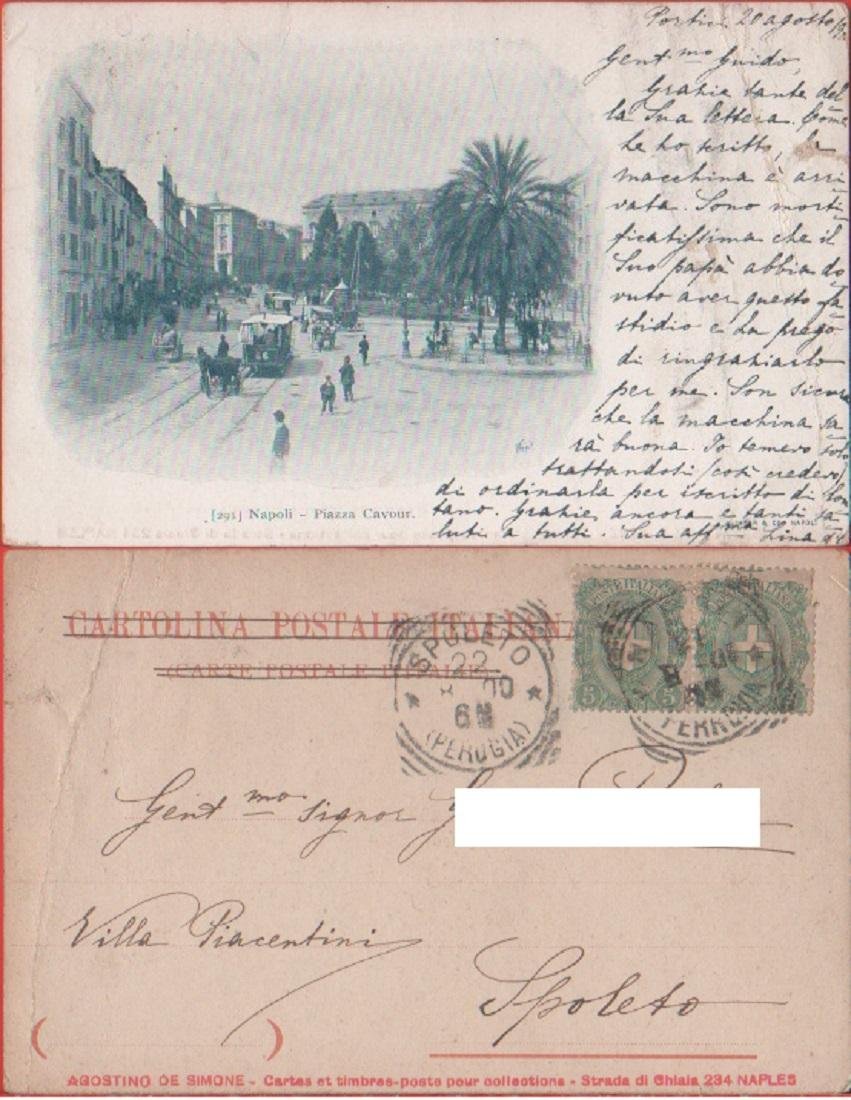 Portici 20 agosto
Gent mo Guido,
Grazie tante del
la Sua lettera. Come
Le ho scritto, la
macchina è arri
vata. Sono morti
ficatissima che il
Suo papà abbia do
vuto aver questo fa
stidio e La prego
di ringraziarlo
per me. Son sicura
che la macchina sa
rà buona. Io temevo solo
trattandosi (così credevo)
di ordinarla per iscritto di lon
tano. Grazie ancora e tanti sa
luti a tutti. Sua aff ma Lina
[291] Napoli - Piazza Cavour.
CARTOLINA POSTALE ITALIANA
(CARTE POSTALE
SPOLETO
22
8 00
6 M
(PERUGIA)
POSTE ITALIANE
5 5
FERROVIA
Gent mo Signor
Villa Piacentini
Spoleto
( )
AGOSTINO DE SIMONE - Cartes et timbres-poste pour collections - Strada di Chiaia 234 NAPLES